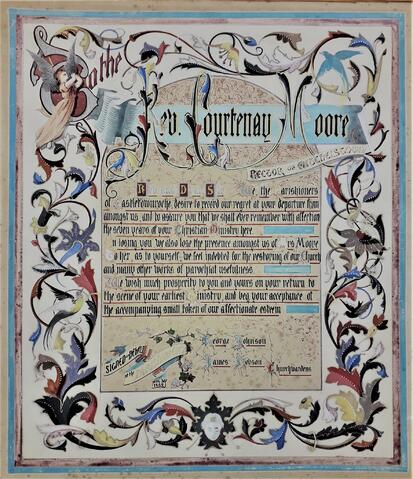 To the
Rev. Courtenay Moore
RECTOR OF
We, the Parishioners
of Castletownroche, desire to record our regret at your departure from
amongst us, and to assure you that we shall ever remember with affection
the seven years of your Christian Ministry here.
In losing you we also lose the presence amongst us of Mrs Moore
To her, as to yourself, we feel indebted for the restoring of our Church
and many other works of parochial usefulness.
We wish much prosperity to you and yours on your return to
the scene of your earliest Ministry, and beg your acceptance of
the accompanying small token of our affectionate esteem
SIGNED
George Johnson
James Hobson
Churchwardens